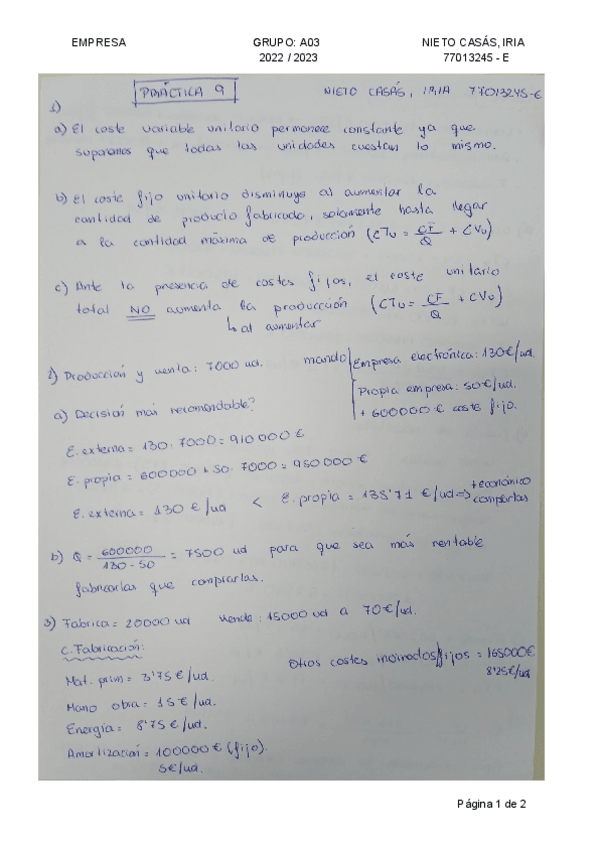 EMPRESA GRUPO: A03 NIETO CASÁS, IRIA
2022 / 2023 77013245 - E
PRÁCTICA 9 NIETO CASÁS, IRIA 77013245-E
1)
a) El coste variable unitario permanece constante ya que
suponemos que todas las unidades cuestan lo mismo.
b) El coste fijo unitario disminuye al aumentar la
cantidad de producto fabricado, solamente hasta llegar
a la cantidad máxima de producción (CTu = CF/Q + CVu)
c) Ante la presencia de costes fijos, el coste unitario
total NO aumenta la producción (CTu = CF/Q + CVu)
↳ al aumentar
2) Producción y venta: 7000 ud. mando Empresa electrónica: 130€/ud.
Propia empresa: 50€/ud.
+ 600000 € coste fijo.
a) Decisión más recomendable?
E. externa = 130 · 7000 = 910000 €
E. propia = 600000 + 50 · 7000 = 950000 €
E. externa = 130 €/ud < E. propia = 135'71 €/ud => + económico
comprarlas
b) Q = 600000 / 130 - 50 = 7500 ud para que sea más rentable
fabricarlas que comprarlas.
3) Fabrica = 20000 ud Vende: 15000 ud a 70€/ud.
C. Fabricación:
Otros costes fijos = 165000€
8'25€/ud
Mat. prim = 3'75 €/ud.
Mano obra = 15 €/ud.
Energía = 8'75 €/ud.
Amortización = 100000 € (fijo).
5€/ud.
Página 1 de 2